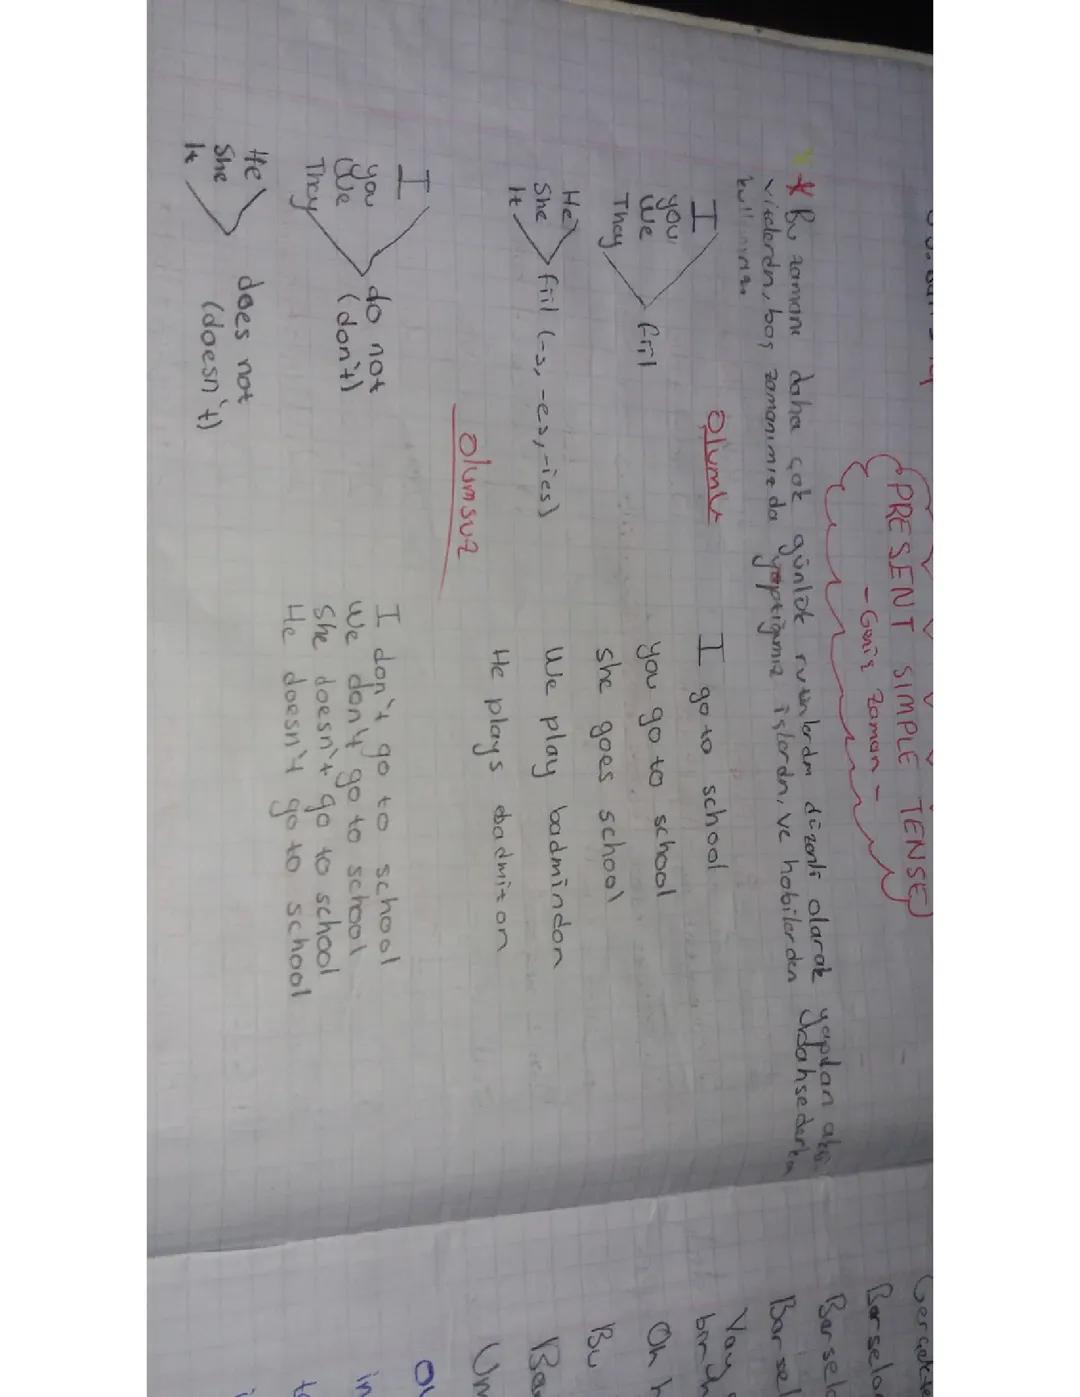 PRESENT SIMPLE TENSE
- Geniş zaman -
* Bu zamanı daha çok günlük rutinlerdn düzenli olarak yapılan
boş zamanımızda yaptığımız işlerdn, ve hobilerden
Olumlu
I
you
We
They
fiil
He
She
It
fiil (-s, -es, -ies)
I go to school
you go to school
she goes school
We play badmindon
He plays badmiton
Olumsuz
I
you
We
They
do not
(don't)
He
She
It
does not
(doesn't)
I don't go to school
We don't go to school
She doesn't go to school
He doesn't go to school
Barselo
Barselo
Barsel
Vay
Oh h
Bu
Ba